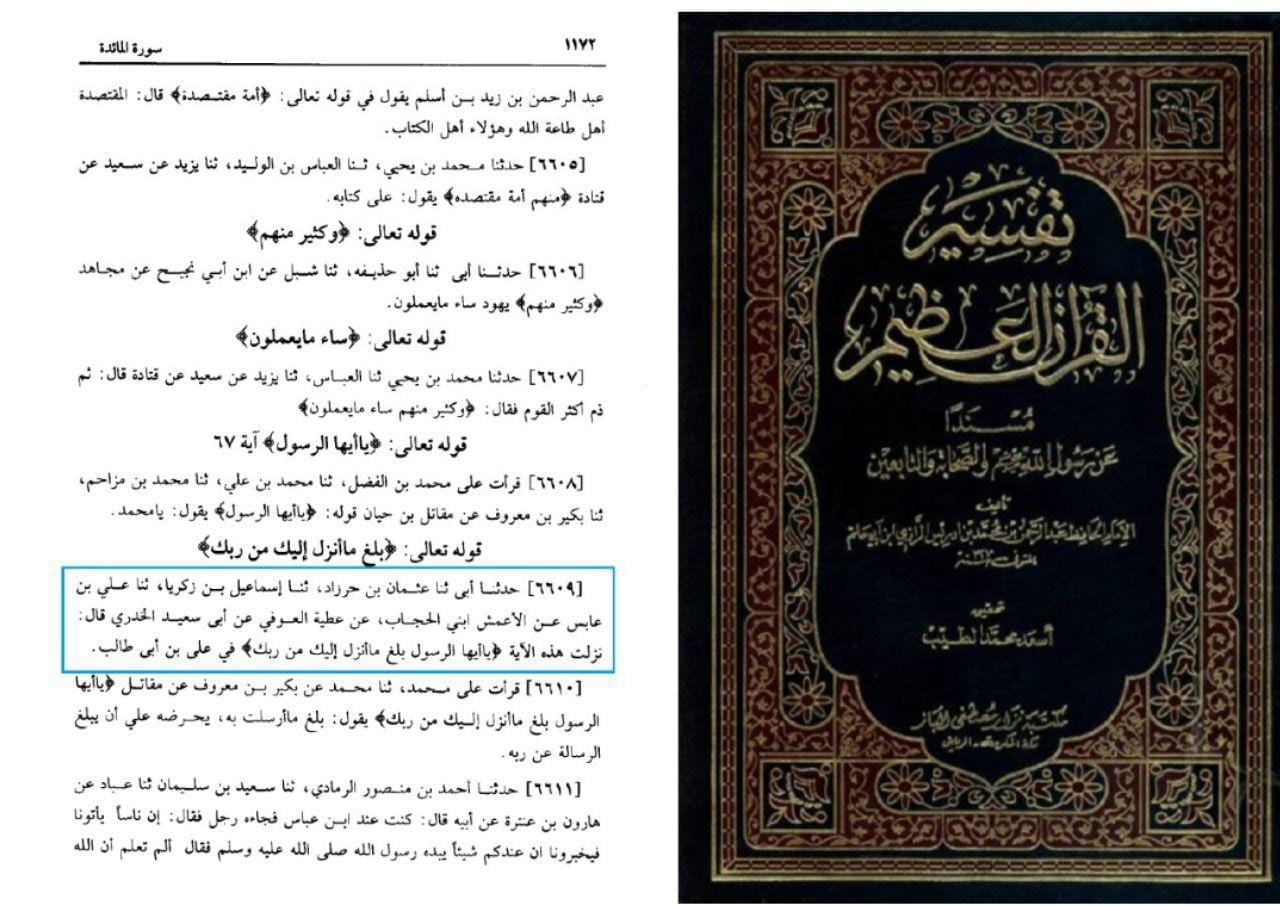 ١١٧٢
سورة المائدة
عبد الرحمن بن زيد بن أسلم يقول في قوله تعالى: ﴿أمة مقتصدة﴾ قال: المقتصدة
أهل طاعة الله وهؤلاء أهل الكتاب.
[٦٦٠٥] حدثنا محمد بن يحيي، ثنا العباس بن الوليد، ثنا يزيد عن سعيد عن
قتادة ﴿منهم أمة مقتصده﴾ يقول: على كتابه.
قوله تعالى: ﴿وكثير منهم﴾
[٦٦٠٦] حدثنا أبى ثنا أبو حذيفه، ثنا شبل عن ابن أبي نجيح عن مجاهد
﴿وكثير منهم﴾ يهود ساء مايعملون.
قوله تعالى: ﴿ساء مايعملون﴾
[٦٦٠٧] حدثنا محمد بن يحيي ثنا العباس، ثنا يزيد عن سعيد عن قتادة قال: ثم
ذم أكثر القوم فقال: ﴿وكثير منهم ساء مايعملون﴾
قوله تعالى: ﴿ياأيها الرسول﴾ آية ٦٧
[٦٦٠٨] قرأت على محمد بن الفضل، ثنا محمد بن علي، ثنا محمد بن مزاحم،
ثنا بكير بن معروف عن مقاتل بن حيان قوله: ﴿ياأيها الرسول﴾ يقول: يامحمد.
قوله تعالى: ﴿بلغ ماأنزل إليك من ربك﴾
[٦٦٠٩] حدثنا أبى ثنا عثمان بن حرزاد، ثنا إسماعيل بن زكريا، ثنا علي بن
عابس عن الأعمش ابني الحجاب، عن عطية العوفي عن أبى سعيد الخدري قال:
نزلت هذه الآية ﴿ياأيها الرسول بلغ ماأنزل إليك من ربك﴾ في على بن أبى طالب.
[٦٦١٠] قرأت على محمد، ثنا محمد عن بكير بن معروف عن مقاتل ﴿ياأيها
الرسول بلغ ماأنزل إليك من ربك﴾ يقول: بلغ ماأرسلت به، يحرضه علي أن يبلغ
الرسالة عن ربه.
[٦٦١١] حدثنا أحمد بن منصور الرمادي، ثنا سعيد بن سليمان ثنا عباد عن
هارون بن عنترة عن أبيه قال: كنت عند ابن عباس فجاءه رجل فقال: إن ناساً يأتونا
فيخبرونا ان عندكم شيئاً يبده رسول الله صلى الله عليه وسلم فقال ألم تعلم أن الله
تفسير
القرآن العظيم
مسندًا
عن رسول الله ﷺ والصحابة والتابعين
تأليف
الإمام الحافظ عبد الرحمن بن محمد بن ادريس الرازي ابن أبي حاتم
تحقيق
أسعد محمد الطيب
مكتبة نزار مصطفى الباز
مكة المكرمة - الرياض